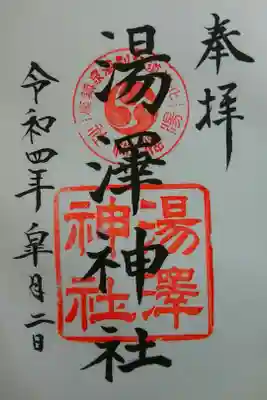 奉拝
湯澤神社
湯澤
神社
令和四年
皐月二日